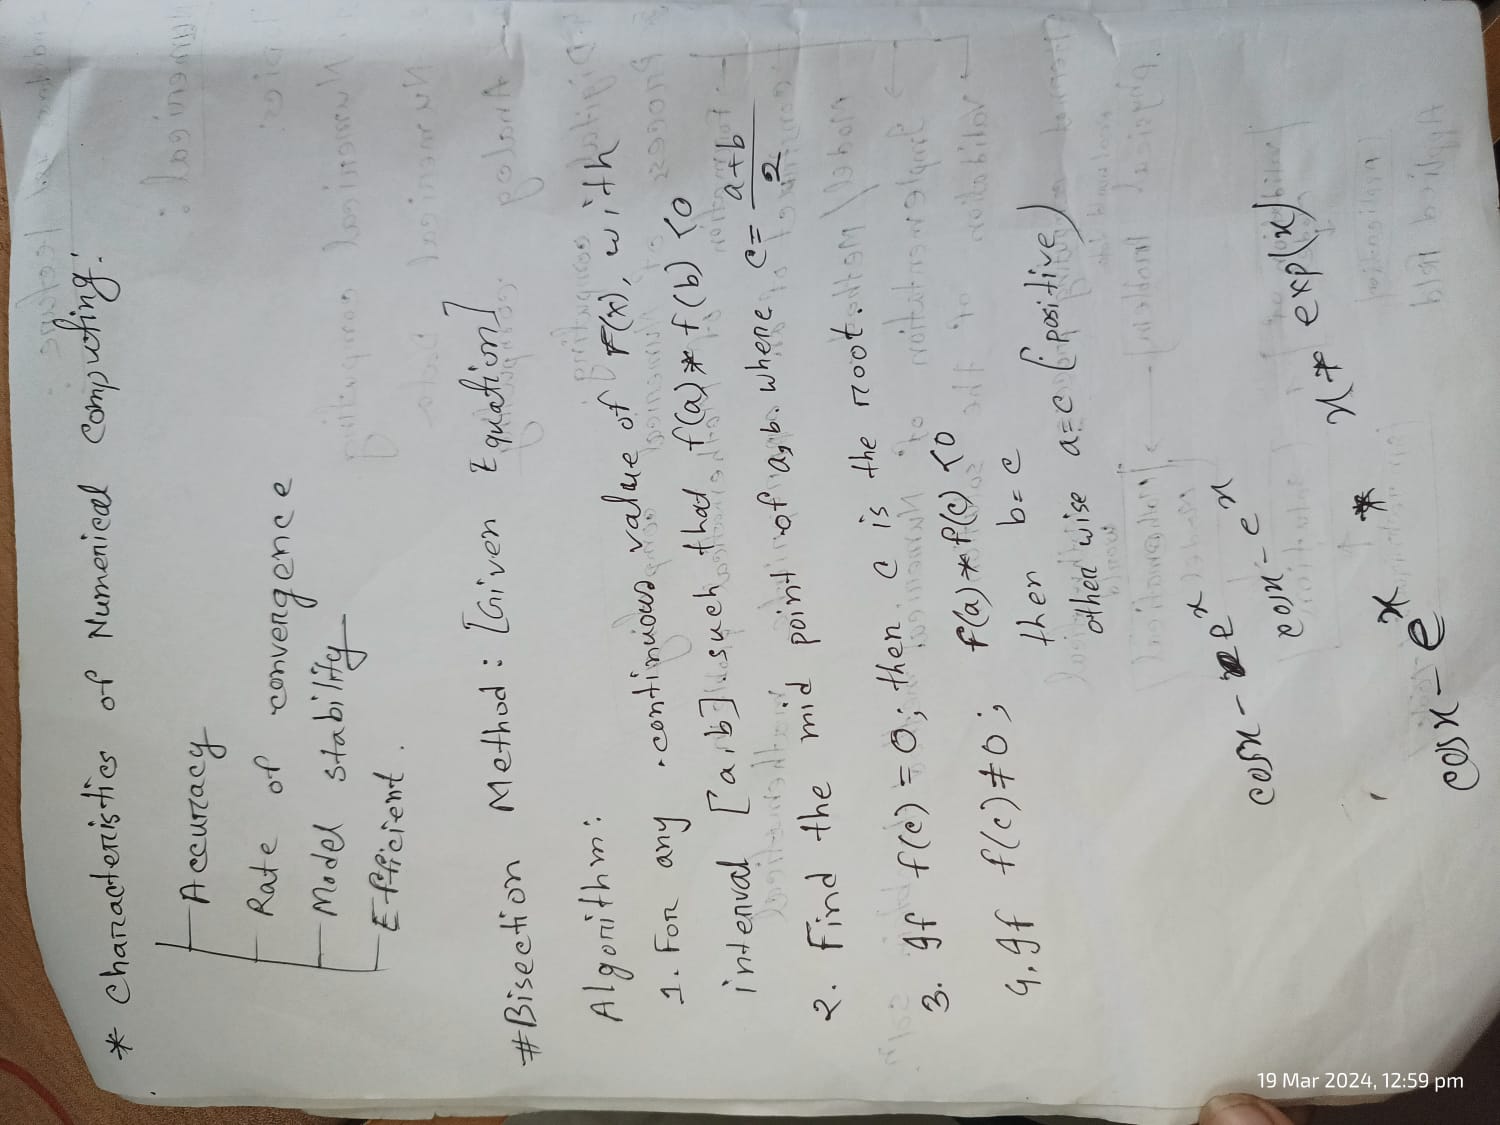 * Characteristics of Numerical Computing:
Accuracy
Rate of convergence
Model stability
Efficient.
#Bisection Method: [Given Equation]
Algorithm:
1. For any continuous value of F(x), with
interval [a,b] such that f(a)*f(b) <0
2. Find the mid point of a,b. where c= a+b/2
3. If f(c) = 0; then c is the root.
4. If f(c) ≠ 0; f(a)*f(c) <0
then b=c
otherwise a=c (positive)
cosx - e^x
cosx - e^x
x * exp(x)
*
cosx - e^x
19 Mar 2024, 12:59 pm